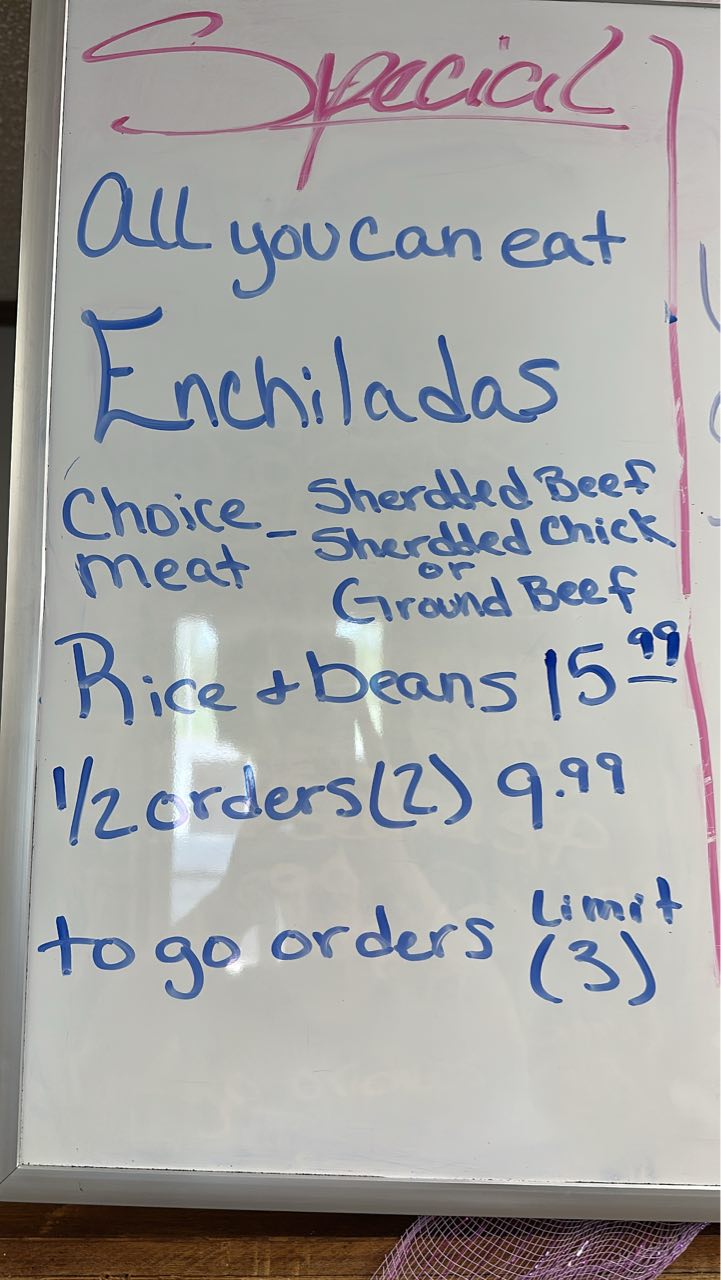 Special
All you can eat
Enchiladas
Choice meat - Sherdded Beef
Sherdded Chick
or
Ground Beef
Rice + beans 15 99
1/2 orders (2) 9.99
to go orders Limit (3)